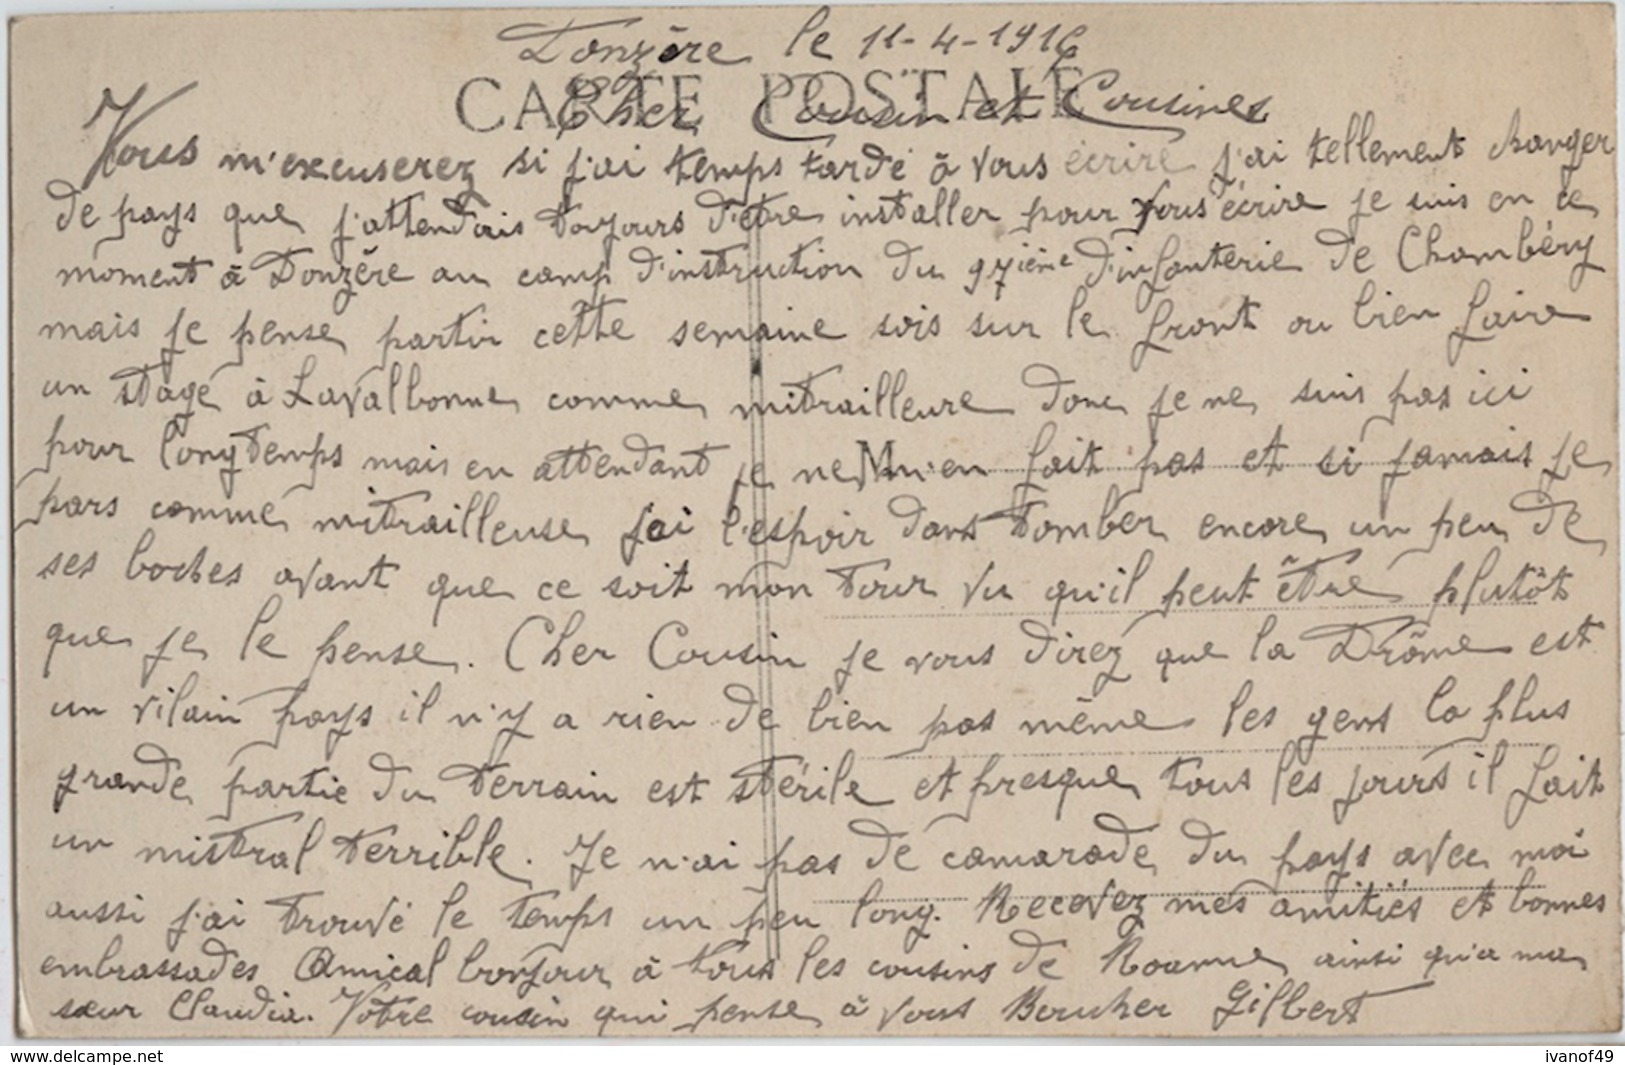 Donzère le 11-4-1916
CARTE POSTALE
Cher Cousin et Cousines
Vous m'excuserez si j'ai temps tardé à vous écrire j'ai tellement changer
de pays que j'attendais toujours d'etre installer pour vous écrire je suis en ce
moment à Donzère au camp d'instruction du 97ième d'infanterie de Chambéry
mais je pense partir cette semaine sois sur le front ou bien faire
un stage à Lavalbonne comme mitrailleure donc je ne suis pas ici
pour longtemps mais en attendant je ne m'en fait pas et si jamais je
pars comme mitrailleuse j'ai l'espoir dans tomber encore un peu de
ses boches avant que ce soit mon tour vu qu'il peut être plutôt
que je le pense. Cher Cousin je vous direz que la Drôme est
un vilain pays il n'y a rien de bien pas même les gens la plus
grande partie du terrain est stérile et presque tous les jours il fait
un mistral terrible. Je n'ai pas de camarade du pays avec moi
aussi j'ai trouvé le temps un peu long. Recevez mes amitiés et bonnes
embrassades Amical bonjour à tous les cousins de Roanne ainsi qu'a ma
sœur Claudia. Votre cousin qui pense à vous Boucher Gilbert
www.delcampe.net
ivanof49